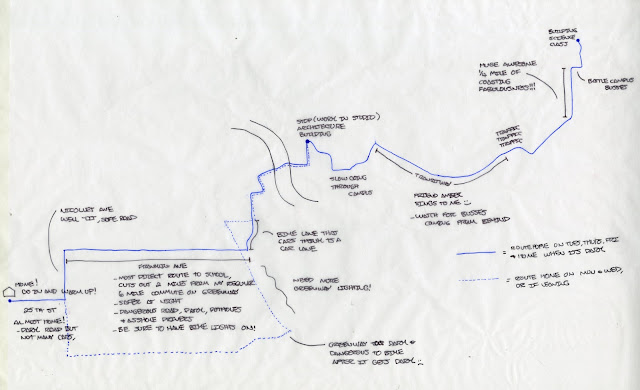 BUILDING
SCIENCE
CLASS
BOTTLE CAMPUS
BUSSES
MUCH AWESOME
1/4 MILE OF
COASTING
FABULOUSNESS!!!
STOP (WORK IN STUDIO)
ARCHITECTURE
BUILDING
TRAFFIC
TRAFFIC
TRAFFIC
SLOW GOING
THROUGH
CAMPUS
TRANSITWAY
FRIEND AMBER
RINGS TO ME :)
- WATCH FOR BUSSES
COMING FROM BEHIND
NICOLLET AVE
WELL LIT, SAFE ROAD
BIKE LANE THAT
CARS THINK IS A
CAR LANE.
= ROUTE HOME ON TUES, THURS, FRI
& HOME WHEN IT'S DARK
= ROUTE HOME ON MON & WED,
OR IF LEAVING
HOME!
GO IN AND WARM UP!
FRANKLIN AVE
- MOST DIRECT ROUTE TO SCHOOL,
CUTS OUT A MILE FROM MY REGULAR
6 MILE COMMUTE ON GREENWAY
- SAFER AT NIGHT
- DANGEROUS ROAD, DARK, POTHOLES
& ASSHOLE DRIVERS
- BE SURE TO HAVE BIKE LIGHTS ON!
NEED MORE
GREENWAY LIGHTING!
25TH ST
ALMOST HOME!
- DARK ROAD BUT
NOT MANY CARS,
GREENWAY TOO DARK &
DANGEROUS TO BIKE
AFTER IT GETS DARK :(